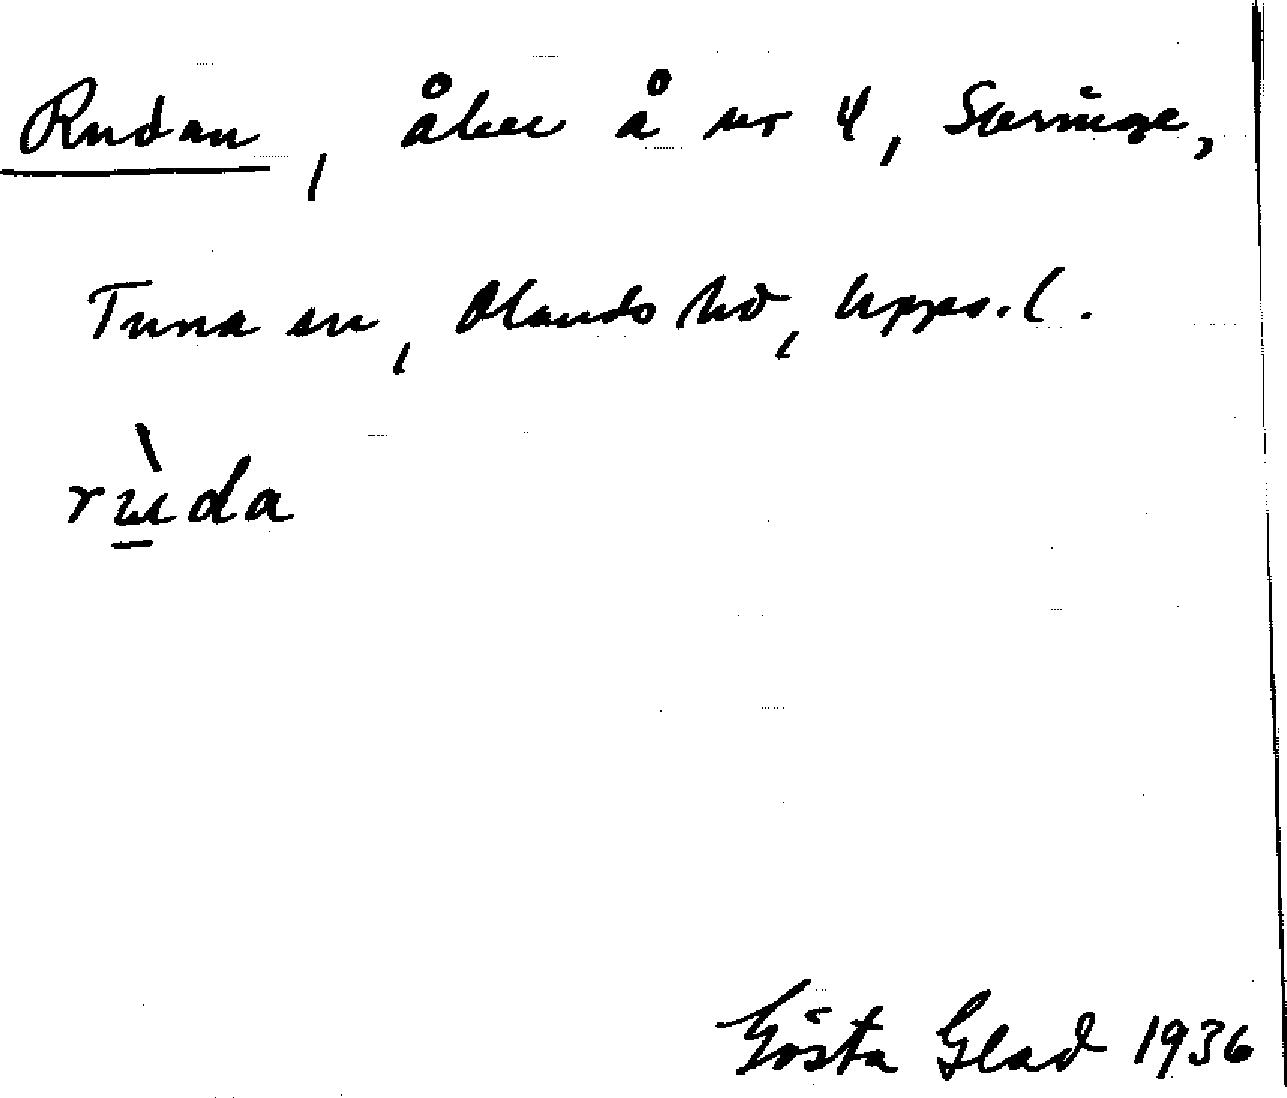 Rudan, åker å nr 4, Særinge,
Tuna sn, Olands hd, Upps. l.
rùda
Gösta Glad 1936